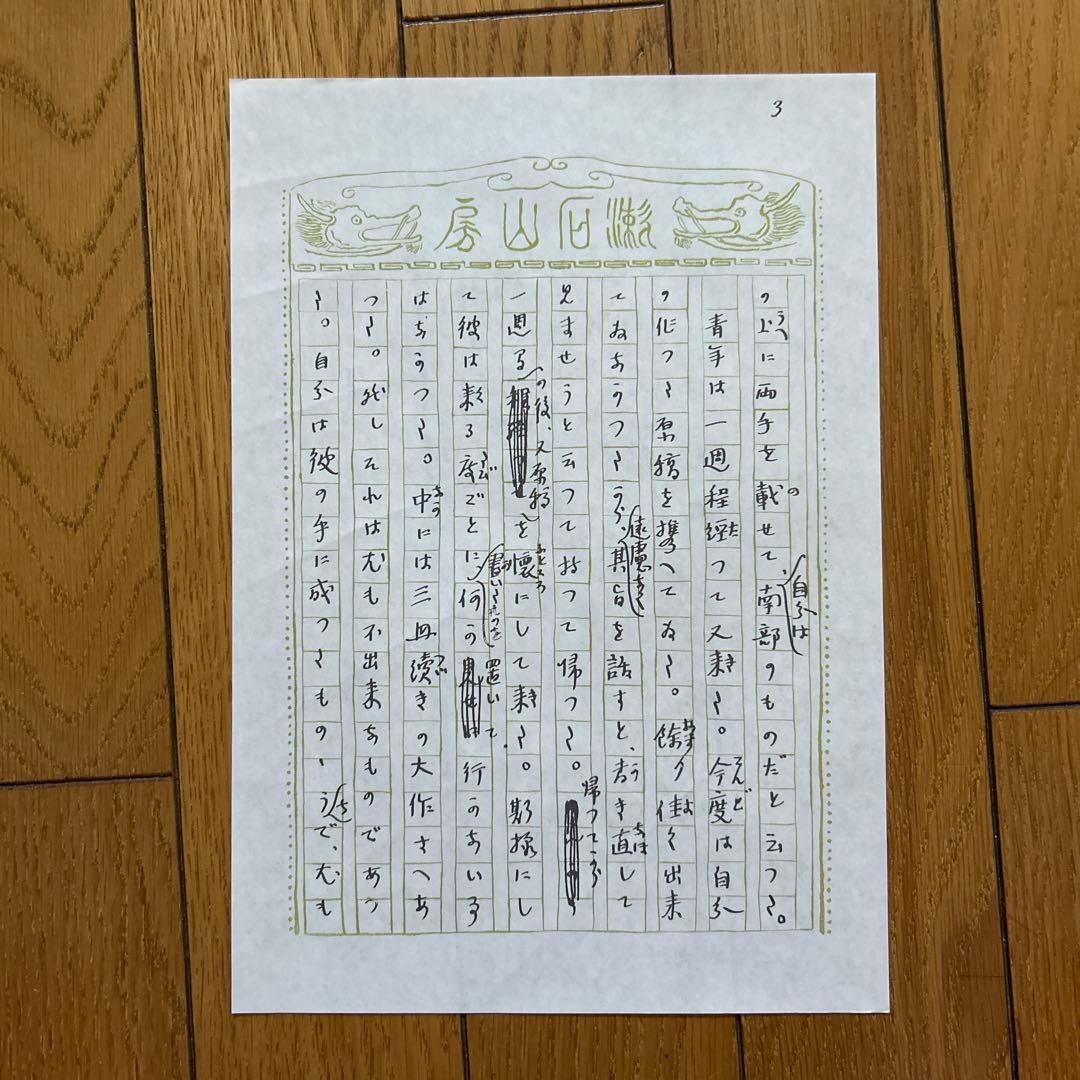 3
漱石山房
の上に両手を載せて、自分は南部のものだと云つた。
青年は一週程經つて又来た。今度は自分
の作つた原稿を携へてゐた。餘り佳く出来
てゐなかつたから、遠慮なく其旨を話すと、書き直して
見ませうと云つて持つて帰つた。帰つてから
一週間の後、又原稿を懐にして来た。斯様にし
て彼は来る度ごとに、書いたものを何か置いて行かない事
はなかつた。中には三冊續きの大作さへあ
つた。然しそれは尤も不出来なものであつ
た。自分は彼の手に成つたものゝうちで、尤も